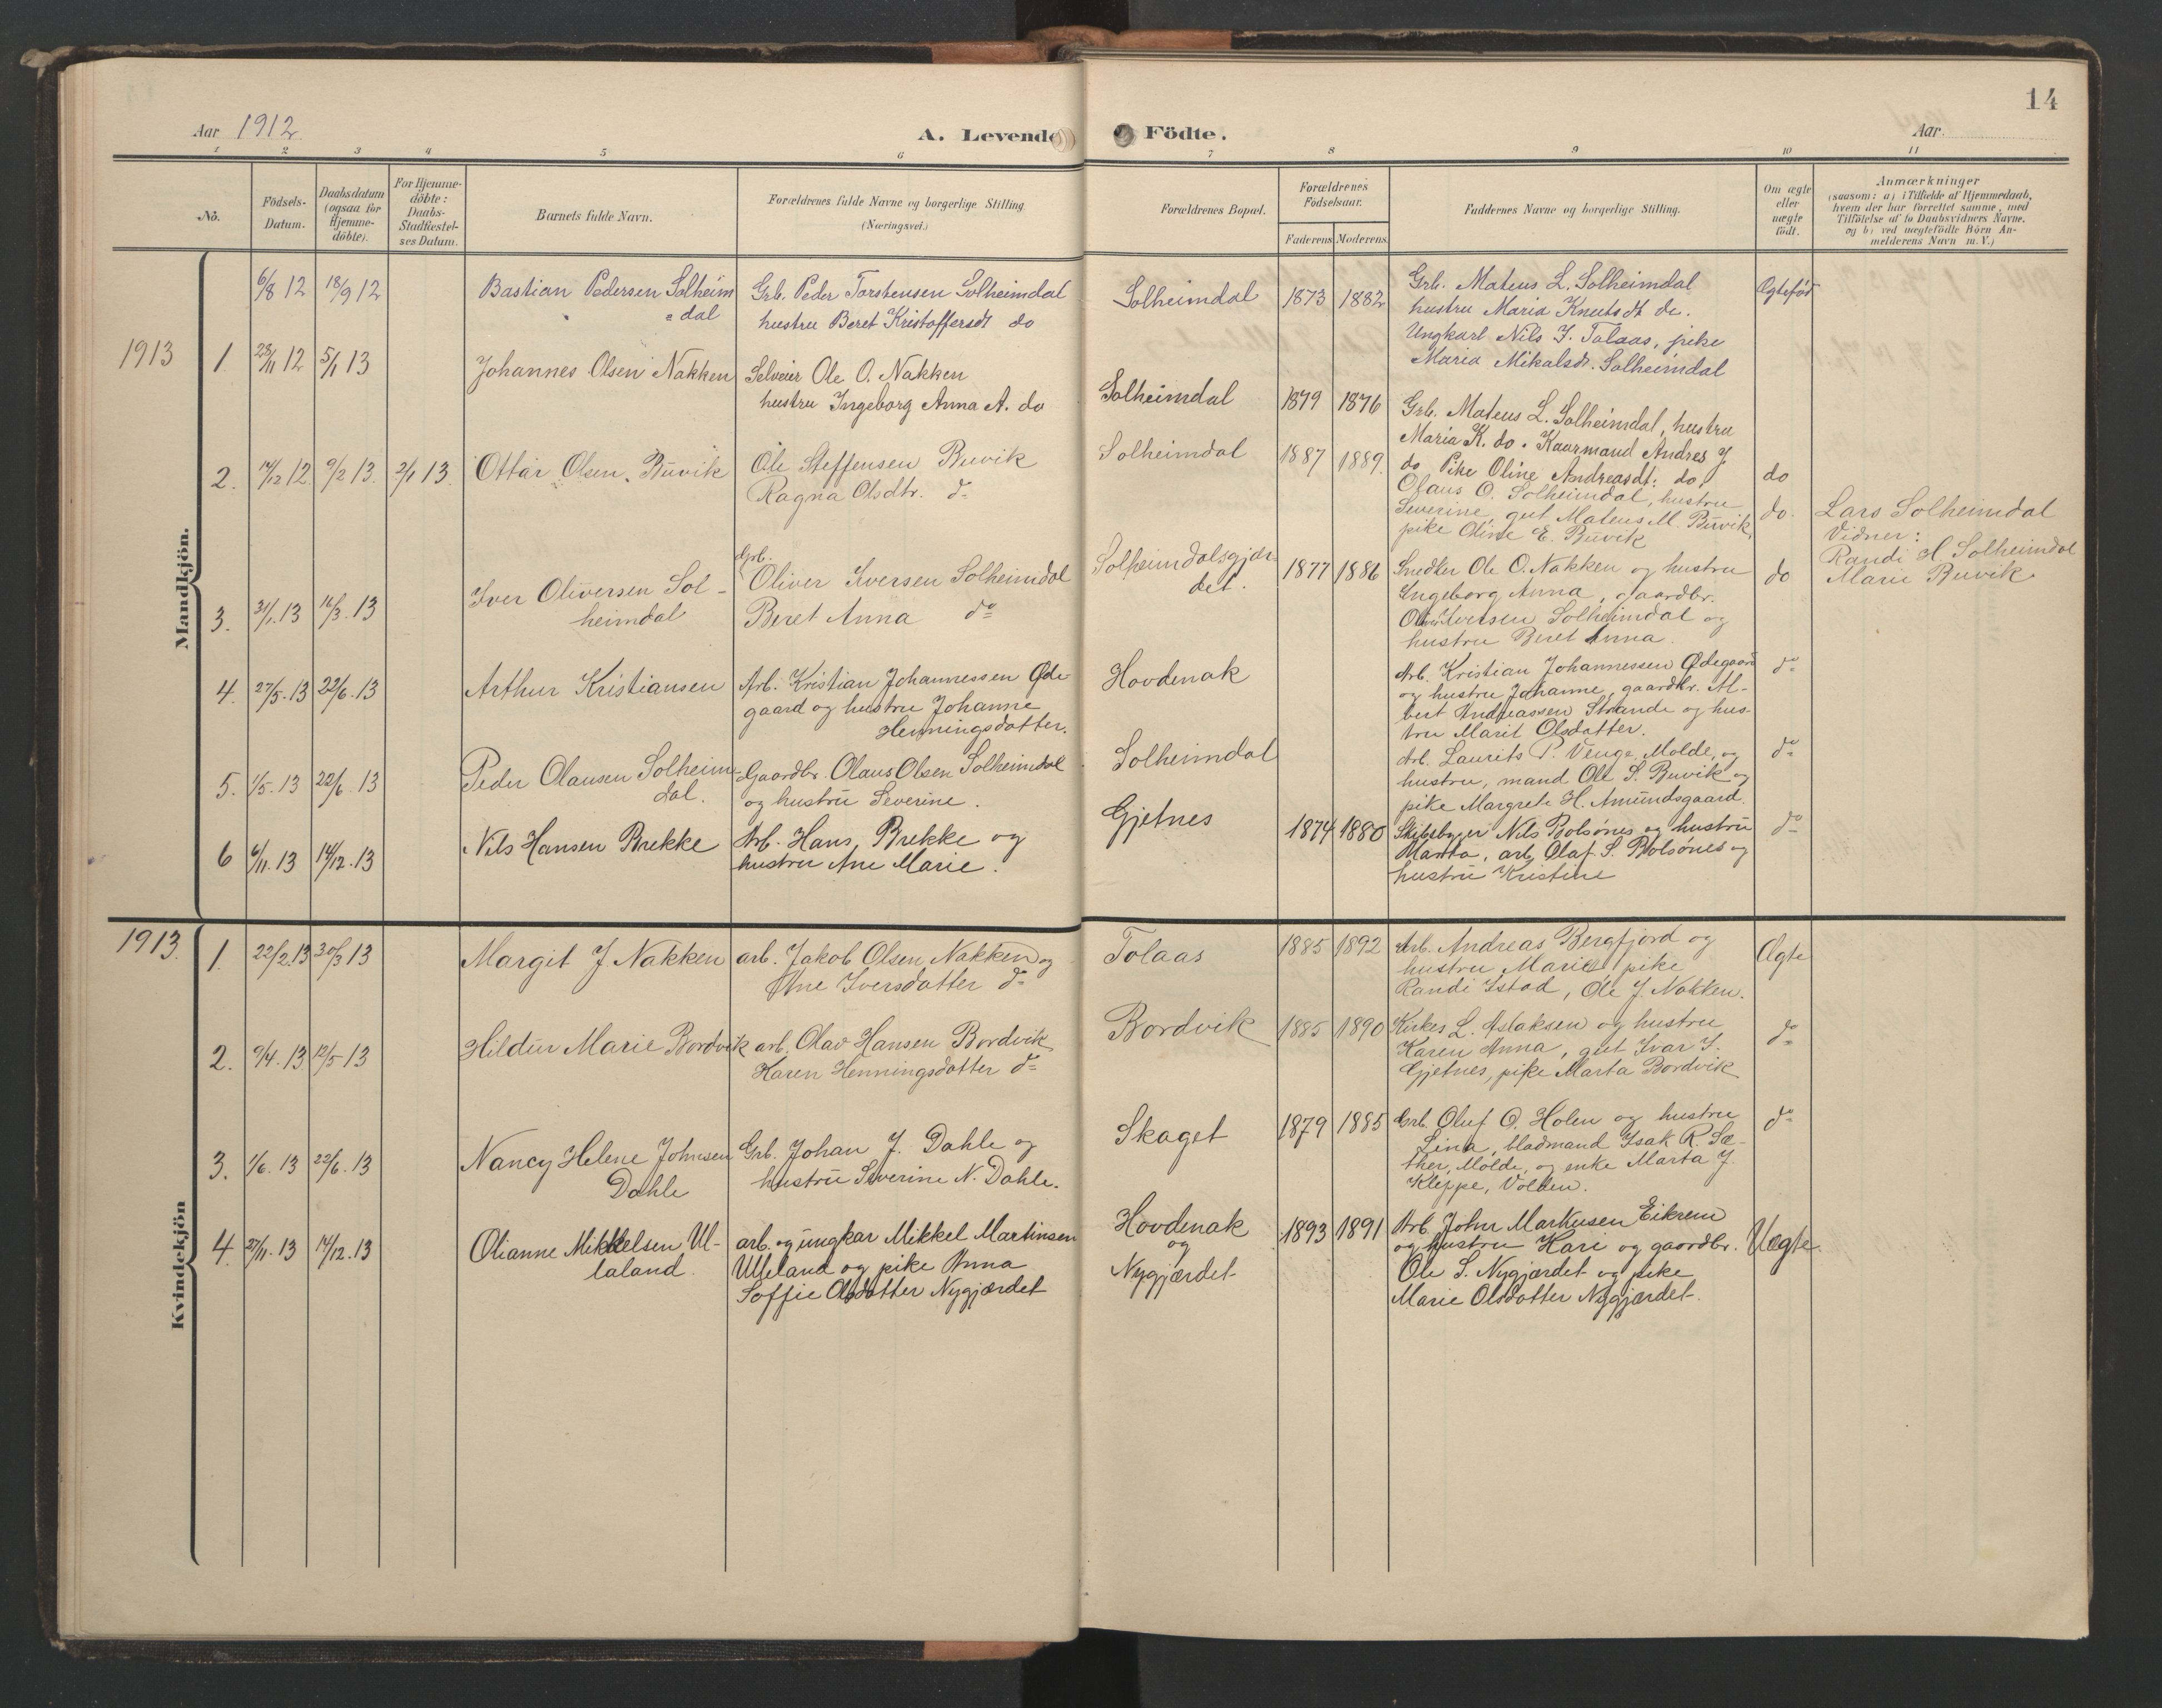 14
Aar 1912.
A. Levende Födte.
Aar
1 2 3 4 5 6 7 8 9 10 11
No.
Födsels-Datum.
Daabsdatum (ogsaa for Hjemme-döbte).
For Hjemme-döbte: Daabs-Stadfæstel-ses Datum.
Barnets fulde Navn.
Forældrenes fulde Navne og borgerlige Stilling
(Næringsvei.)
Forældrenes Bopæl.
Forældrenes Födselsaar.
Faderens Moderens
Faddernes Navne og borgerlige Stilling.
Om ægte eller uægte födt.
Anmærkninger
(saasom: a) i Tilfælde af Hjemmedaab,
hvem der har forrettet samme, med
Tilföielse af to Daabsvidners Navne.
og b) ved uægtefödte Börn An-
melderens Navn m. V.)
Mandkjön.
6/8 12 18/9 12 Bastian Pedersen Solheim
dal
Grb. Peder Torstensen Solheimdal
hustru Beret Kristoffersdt do
Solheimdal 1873 1882
Grb. Mateus L. Solheimdal
hustru Maria Knutsdt do.
Ungkarl Nils J. Tolaas, pike
Maria Mikalsdt. Solheimdal
Ægtefød
1913 1. 28/11 12 5/1 13 Johannes Olsen Nakken
Selveier Ole O. Nakken
hustru Ingeborg Anna A. do
Solheimdal 1879 1876
Grb. Mateus L. Solheimdal, hustru
Maria K. do. Kaarmand Andres J.
do Pike Oline Andreasdt: do,
do
2. 14/12 12. 9/2 13. 2/1 13. Ottar Olsen Buvik
Ole Steffensen Buvik
Ragna Olsdtr. do
Solheimdal 1887 1889.
Olaus O. Solheimdal, hustru
Severine, gut Mateus M. Buvik,
pike Oline E. Buvik
do.
Lars Solheimdal
Vidner:
Randi H. Solheimdal
Marie Buvik
3. 31/1. 13 16/3. 13 Iver Oliversen Sol-
heimdal
Grb.
Oliver Iversen Solheimdal
Beret Anna do
Solheimdalsgjær-
det. 1877 1886
Snedker Ole O. Nakken og hustru
Ingeborg Anna, gaardbr.
Oliver Iversen Solheimdal og
hustru Beret Anna.
do
4. 27/5. 13 22/6. 13 Arthur Kristiansen
Arb. Kristian Johannessen Øde-
gaard og hustru Johanne
Henningsdatter.
Hovdenak
Arb. Kristian Johannessen Ødegaard
og hustru Johanne, gaardbr. Al-
bert Andreassen Strande og hus-
tru Marit Olsdatter.
do
5. 1/5. 13 22/6. 13 Peder Olausen Solheim-
dal.
Gaardbr. Olaus Olsen Solheimdal
og hustru Severine.
Solheimdal
Arb. Laurits P. Venge, Molde, og
hustru, mand Ole S. Buvik og
pike Margrete H. Amundsgaard.
do
6 6/11. 13 14/12. 13 Nils Hansen Brekke
Arb. Hans Brekke og
hustru Ane Marie.
Gjetnes 1874 1880
Skibsbygger Nils Bolsønes og hustru
Marta, arb. Olaf S. Bolsønes og
hustru Kristine
do
Kvindekjön
1913. 1. 22/2.13 30/3 13 Margit J. Nakken
arb. Jakob Olsen Nakken og
Ane Iversdatter do
Tolaas 1885 1892
Arb. Andreas Bergfjord og
hustru Marie pike
Randi Istad, Ole J. Nakken.
Ægte
2. 9/4. 13 12/5 13 Hildur Marie Bordvik
arb. Olav Hansen Bordvik
Karen Henningsdatter do
Bordvik 1885 1890
Kirkes L. Aslaksen og hustru
Karen Anna, gut Ivar I.
Gjetnes, pike Marta Bordvik
do
3. 1/6. 13 22/6. 13 Nancy Helene Johnsen
Dahle
Grb. Johan J. Dahle og
hustru Severine N. Dahle.
Skaget 1879 1885
Grb. Oluf O. Holen og hustru
Lina, bladmand Isak R. Sæ-
ther, Molde, og enke Marta J.
Kleppe, Volden.
do
4. 27/11. 13 14/12. 13 Olianne Mikkelsen Ul-
laland.
arb. og ungkar Mikkel Martinsen
Ulleland og pike Anna
Soffie Olsdatter Nygjærdet
Hovdenak
og
Nygjærdet 1893 1891
Arb. John Markusen Eikrem
og hustru Kari og gaardbr.
Ole S. Nygjærdet og pike
Marie Olsdatter Nygjærdet.
Uægte.